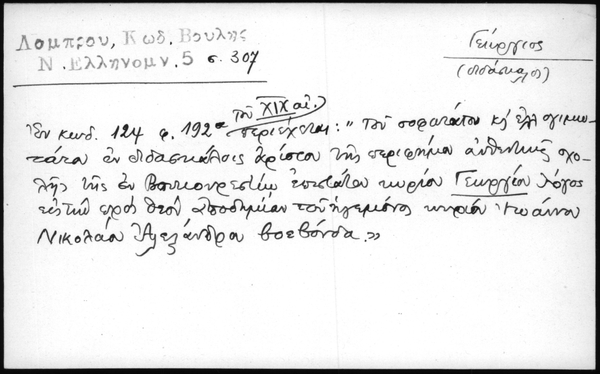 Λαμπρου, Κωδ. Βουλης
Ν. Ελληνομν. 5 σ. 307
Γεώργιος
(διδάσκαλος)
τοῦ XIX αἰ.
Ἐν κωδ. 124 φ. 192α περιέχεται: "Τοῦ σοφωτάτου κ' ἐλλογιμω-
τάτου ἐν διδασκάλοις ἀρίστου τῆς περιφήμου αὐθεντικῆς σχο-
λῆς τῆς ἐν Βουκουρεστίῳ ἐπιστάτου κυρίου Γεωργίου λόγος
εἰς τὴν πρὸς Θεὸν ἀποδημίαν τοῦ ἡγεμόνος κυρίου Ἰωάννου
Νικολάου Ἀλεξάνδρου βοεβόνδα."